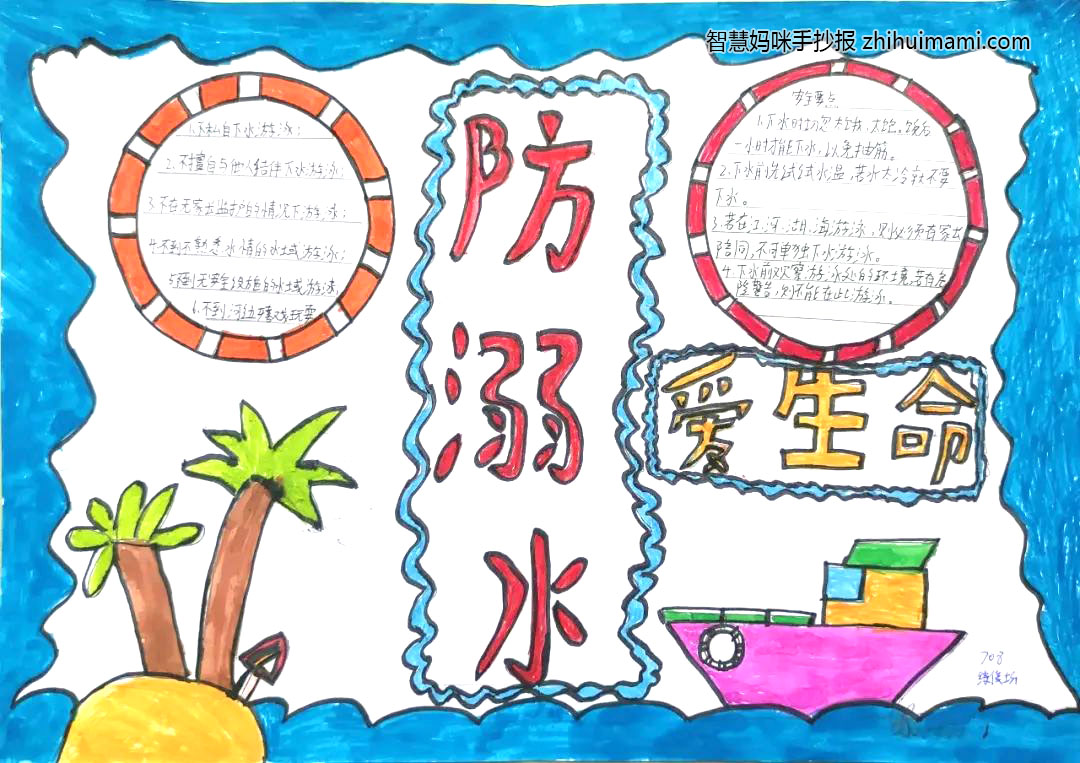 智慧妈咪手抄报 zhihuimami.com
1.不私自下水游泳；
2.不擅自与他人结伴下水游泳；
3.不在无家长监护的情况下游泳；
4.不到不熟悉水情的水域游泳；
5.不到无安全设施的水域游泳，
6.不到河边嬉戏玩耍
防
溺
水
安全要点
1.下水时切次太饿、太饱。饭后
一小时才能下水，以免抽筋。
2.下水前先试试水温，若水太冷就不要
下水。
3.若在江、河、湖、海游泳，则必须有家长
陪同，不可单独下水游泳。
4.下水前观察游泳处的环境，若有危
险警告，则不能在此游泳。
爱生命
708